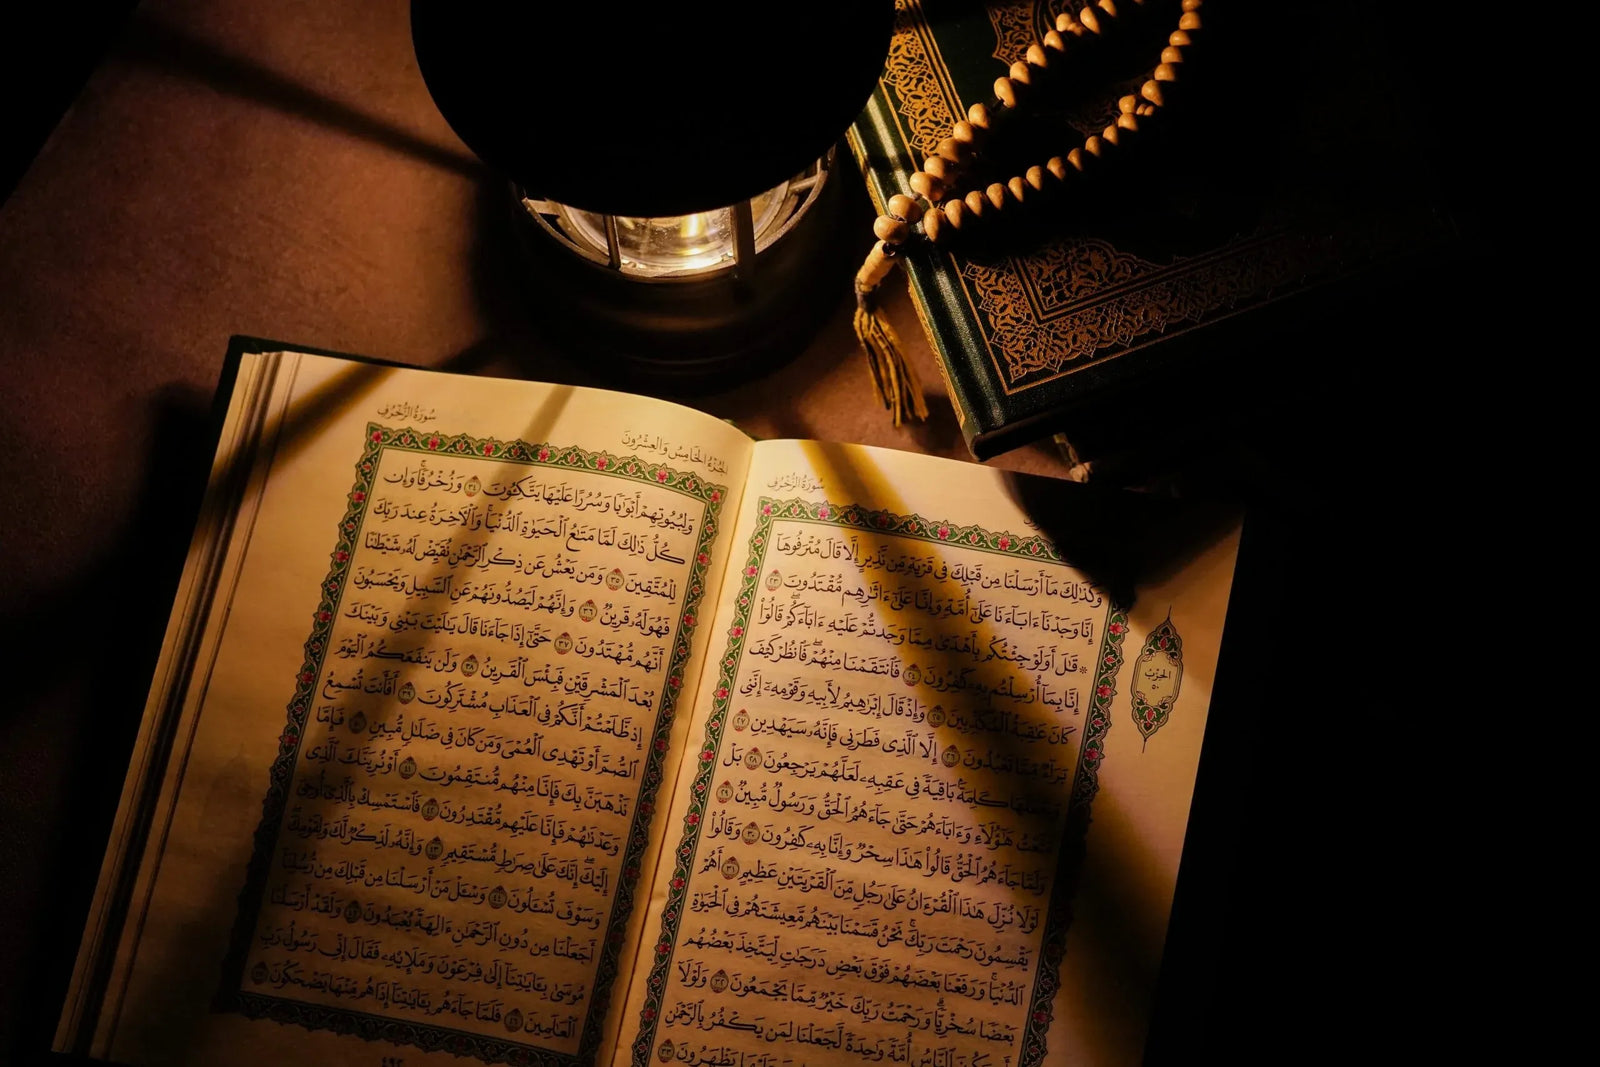 سُورَةُ الزُّخْرُفِ
وَكَذَٰلِكَ مَآ أَرْسَلْنَا مِن قَبْلِكَ فِي قَرْيَةٍ مِّن نَّذِيرٍ إِلَّا قَالَ مُتْرَفُوهَآ
إِنَّا وَجَدْنَآ ءَابَآءَنَا عَلَىٰٓ أُمَّةٍ وَإِنَّا عَلَىٰٓ ءَاثَٰرِهِم مُّقْتَدُونَ ٢٣
۞ قَٰلَ أَوَلَوْ جِئْتُكُم بِأَهْدَىٰ مِمَّا وَجَدتُّمْ عَلَيْهِ ءَابَآءَكُمْ ۖ قَالُوٓاْ
إِنَّا بِمَآ أُرْسِلْتُم بِهِۦ كَٰفِرُونَ ٢٤ فَٱنتَقَمْنَا مِنْهُمْ ۖ فَٱنظُرْ كَيْفَ
كَانَ عَٰقِبَةُ ٱلْمُكَذِّبِينَ ٢٥ وَإِذْ قَالَ إِبْرَٰهِيمُ لِأَبِيهِ وَقَوْمِهِۦٓ إِنَّنِي
بَرَآءٌ مِّمَّا تَعْبُدُونَ ٢٦ إِلَّا ٱلَّذِي فَطَرَنِي فَإِنَّهُۥ سَيَهْدِينِ ٢٧
وَجَعَلَهَا كَلِمَةَۢ بَاقِيَةً فِي عَقِبِهِۦ لَعَلَّهُمْ يَرْجِعُونَ ٢٨ بَلْ
مَتَّعْتُ هَٰٓؤُلَآءِ وَءَابَآءَهُمْ حَتَّىٰ جَآءَهُمُ ٱلْحَقُّ وَرَسُولٌ مُّبِينٌ ٢٩
وَلَمَّا جَآءَهُمُ ٱلْحَقُّ قَالُواْ هَٰذَا سِحْرٌ وَإِنَّا بِهِۦ كَٰفِرُونَ ٣٠ وَقَالُواْ
لَوْلَا نُزِّلَ هَٰذَا ٱلْقُرْءَانُ عَلَىٰ رَجُلٍ مِّنَ ٱلْقَرْيَتَيْنِ عَظِيمٍ ٣١ أَهُمْ
يَقْسِمُونَ رَحْمَتَ رَبِّكَ ۚ نَحْنُ قَسَمْنَا بَيْنَهُم مَّعِيشَتَهُمْ فِي ٱلْحَيَوٰةِ
ٱلدُّنْيَا ۚ وَرَفَعْنَا بَعْضَهُمْ فَوْقَ بَعْضٍ دَرَجَٰتٍ لِّيَتَّخِذَ بَعْضُهُم
بَعْضًا سُخْرِيًّا ۗ وَرَحْمَتُ رَبِّكَ خَيْرٌ مِّمَّا يَجْمَعُونَ ٣٢ وَلَوْلَآ
يَكُونَ ٱلنَّاسُ أُمَّةً وَٰحِدَةً لَّجَعَلْنَا لِمَن يَكْفُرُ بِٱلرَّحْمَٰنِ
عَلَيْهَا يَظْهَرُونَ ٣٣
الحِزْب
٥٠
سُورَةُ الزُّخْرُفِ
الجُزْءُ الخَامِسُ وَالعِشْرُونَ
وَلِبُيُوتِهِمْ أَبْوَٰبًا وَسُرُرًا عَلَيْهَا يَتَّكِـُٔونَ ٣٤ وَزُخْرُفًا ۚ وَإِن
كُلُّ ذَٰلِكَ لَمَّا مَتَٰعُ ٱلْحَيَوٰةِ ٱلدُّنْيَا ۚ وَٱلْأٓخِرَةُ عِندَ رَبِّكَ
لِلْمُتَّقِينَ ٣٥ وَمَن يَعْشُ عَن ذِكْرِ ٱلرَّحْمَٰنِ نُقَيِّضْ لَهُۥ شَيْطَٰنًا
فَهُوَ لَهُۥ قَرِينٌ ٣٦ وَإِنَّهُمْ لَيَصُدُّونَهُمْ عَنِ ٱلسَّبِيلِ وَيَحْسَبُونَ
أَنَّهُم مُّهْتَدُونَ ٣٧ حَتَّىٰٓ إِذَا جَآءَنَا قَالَ يَٰلَيْتَ بَيْنِي وَبَيْنَكَ
بُعْدَ ٱلْمَشْرِقَيْنِ فَبِئْسَ ٱلْقَرِينُ ٣٨ وَلَن يَنفَعَكُمُ ٱلْيَوْمَ
إِذ ظَّلَمْتُمْ أَنَّكُمْ فِي ٱلْعَذَابِ مُشْتَرِكُونَ ٣٩ أَفَأَنتَ تُسْمِعُ
ٱلصُّمَّ أَوْ تَهْدِي ٱلْعُمْيَ وَمَن كَانَ فِي ضَلَٰلٍ مُّبِينٍ ٤٠ فَإِمَّا
نَذْهَبَنَّ بِكَ فَإِنَّا مِنْهُم مُّنتَقِمُونَ ٤١ أَوْ نُرِيَنَّكَ ٱلَّذِي
وَعَدْنَٰهُمْ فَإِنَّا عَلَيْهِم مُّقْتَدِرُونَ ٤٢ فَٱسْتَمْسِكْ بِٱلَّذِيٓ أُوحِيَ
إِلَيْكَ ۖ إِنَّكَ عَلَىٰ صِرَٰطٍ مُّسْتَقِيمٍ ٤٣ وَإِنَّهُۥ لَذِكْرٌ لَّكَ وَلِقَوْمِكَ ۖ
وَسَوْفَ تُسْـَٔلُونَ ٤٤ وَسْـَٔلْ مَنْ أَرْسَلْنَا مِن قَبْلِكَ مِن رُّسُلِنَآ
أَجَعَلْنَا مِن دُونِ ٱلرَّحْمَٰنِ ءَالِهَةً يُعْبَدُونَ ٤٥ وَلَقَدْ أَرْسَلْنَا
مُوسَىٰ بِـَٔايَٰتِنَآ إِلَىٰ فِرْعَوْنَ وَمَلَإِيْهِۦ فَقَالَ إِنِّي رَسُولُ رَبِّ
ٱلْعَٰلَمِينَ ٤٦ فَلَمَّا جَآءَهُم بِـَٔايَٰتِنَآ إِذَا هُم مِّنْهَا يَضْحَكُونَ ٤٧
٤٩٢